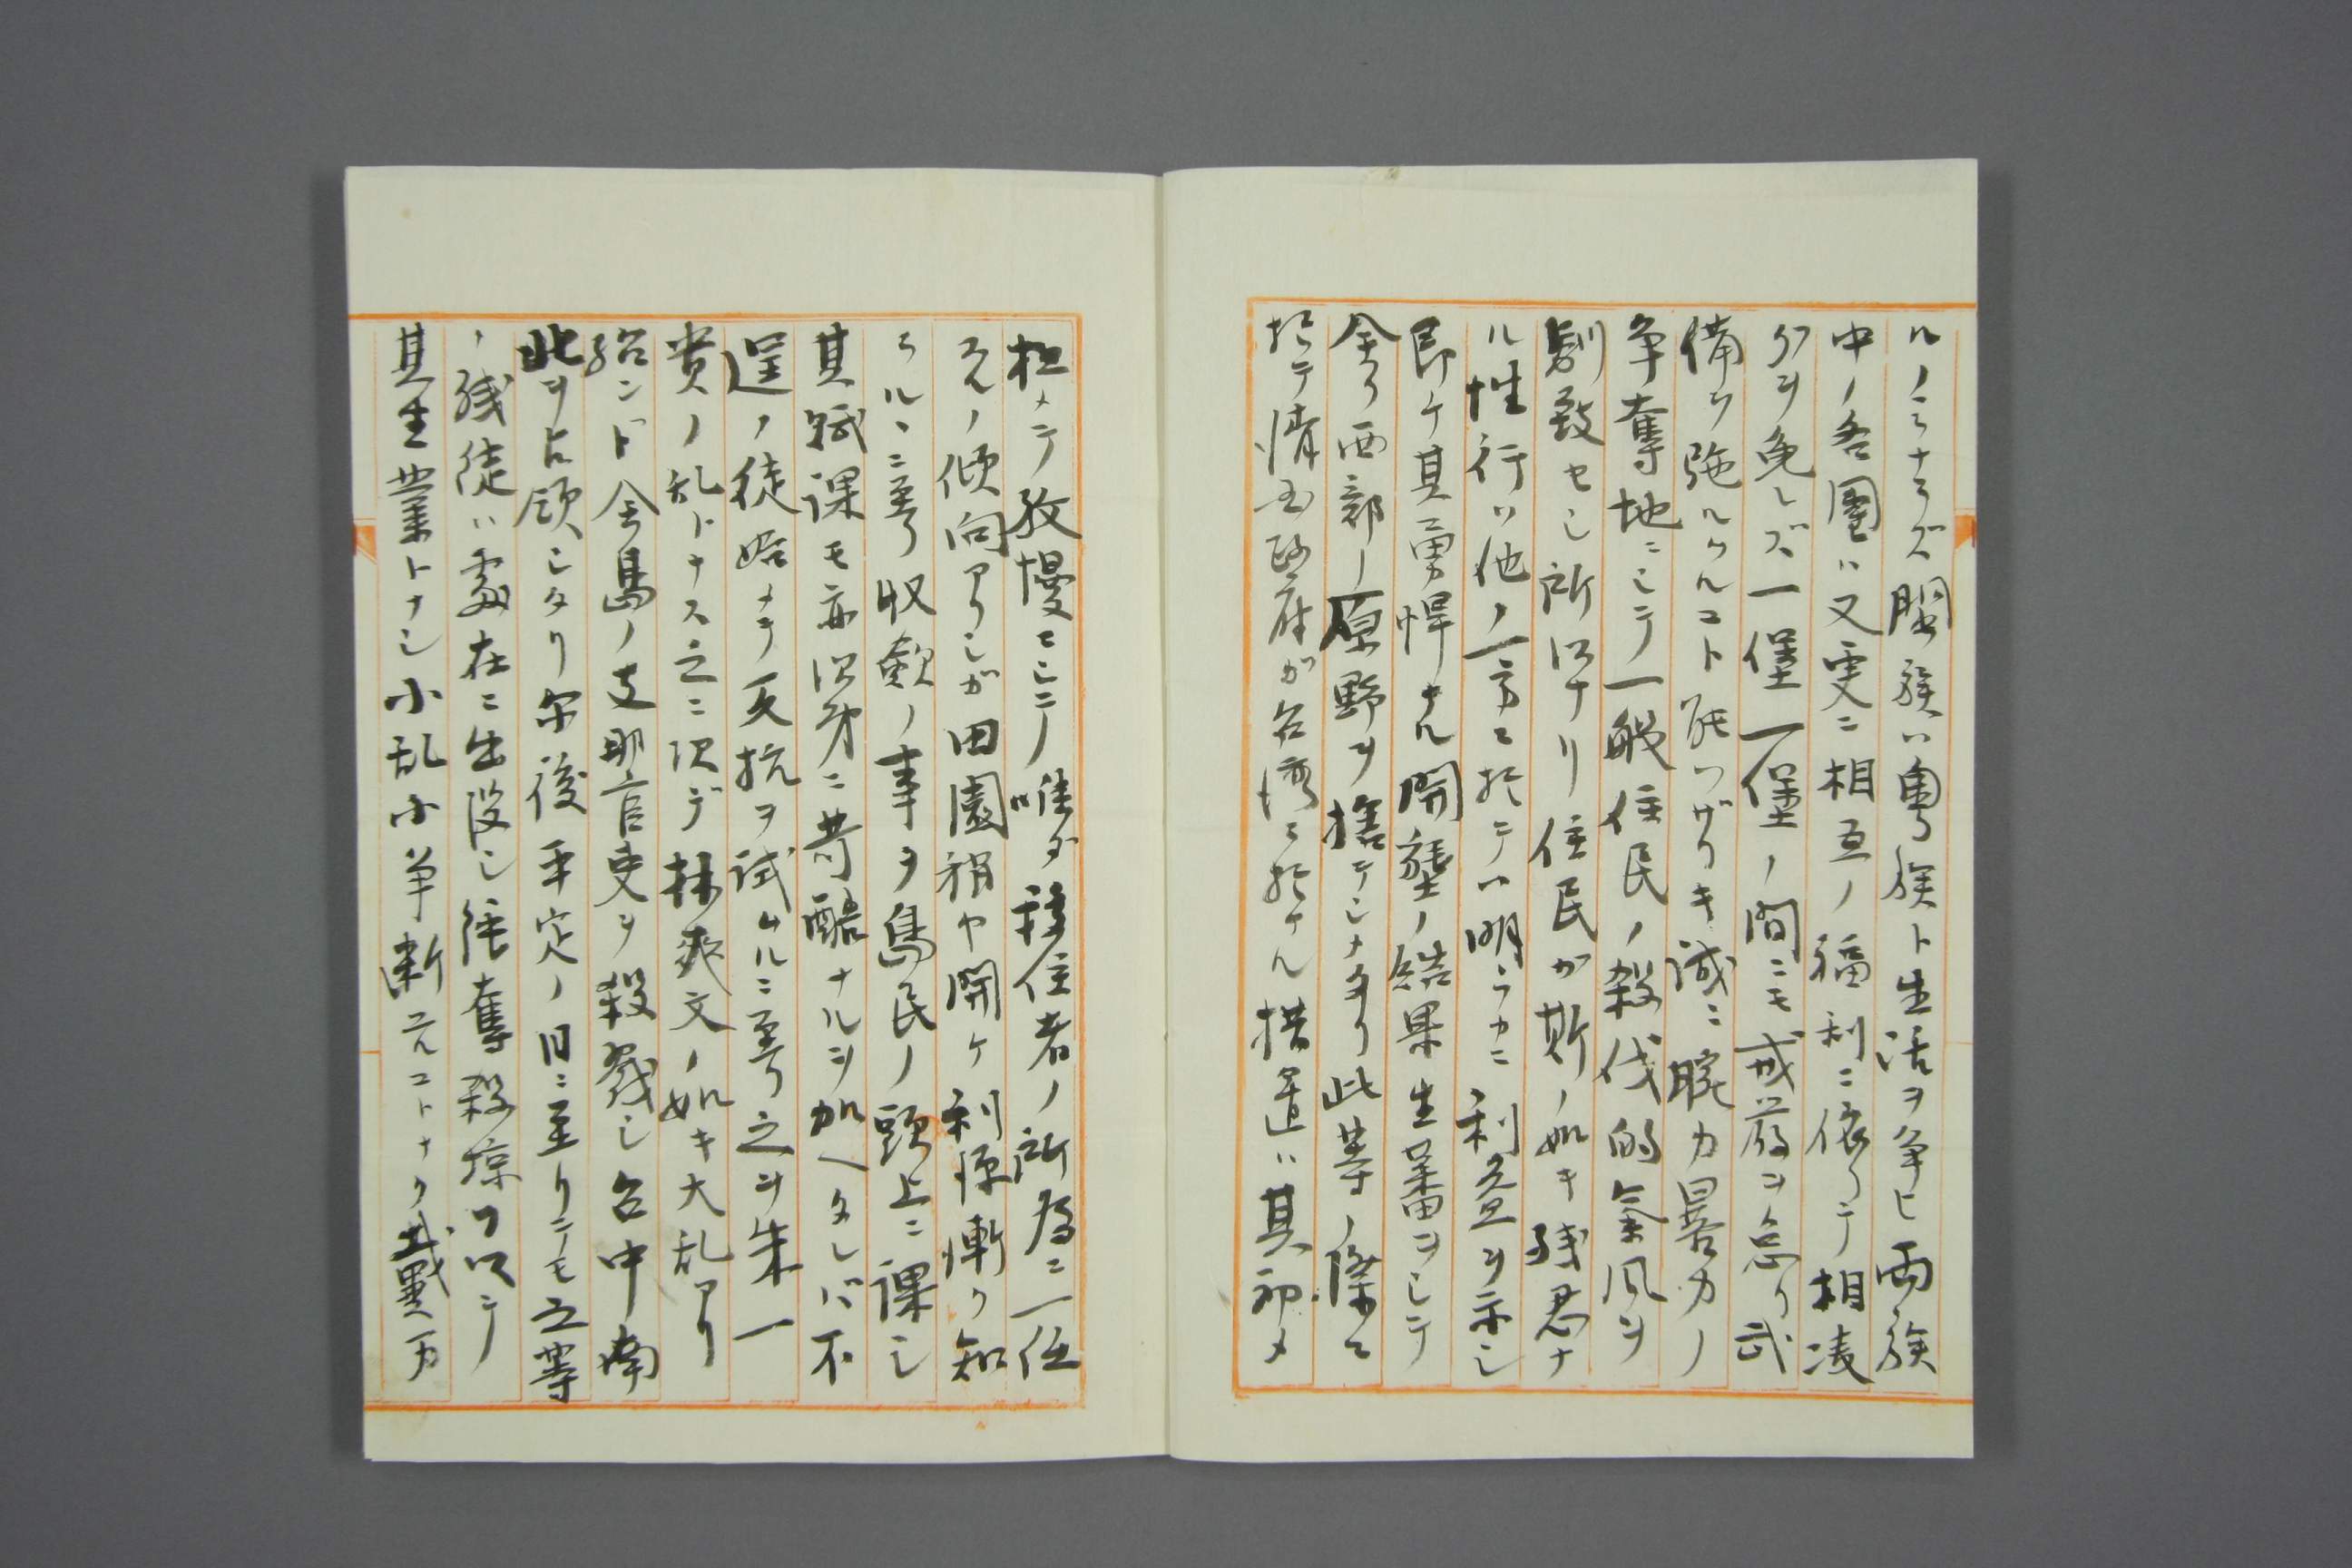 ルノミナラズ閩族ハ粤族ト生活ヲ争ヒ両族
中ノ各團ハ又更ニ相互ノ福利ニ依リテ相凌
グヲ免レズ一堡一堡ノ間ニモ戒厳ヲ怠リ武
備ヲ弛ルヘルコト能ハザリキ誠ニ腕力暴力ノ
争奪地ニシテ一般住民ノ殺伐的氣風ヲ
馴致セシ所以ナリ住民ガ斯ノ如キ残忍ナ
ル性行ハ他ノ一方ニ於テハ明ラカニ利益ヲ示シ
即ケ其勇悍ナル開墾ノ結果生蕃ヲシテ
全ク西部ノ原野ヲ捨テシナタリ此等ノ際ニ
於テ清國政府ガ台湾ニ於ケル措置ハ其初メ
極メテ放慢ニシテ唯ダ移住者ノ所為ニ一任
スルノ傾向アリシガ田園稍ヤ開ケ利源漸ク知
ラルヽニ至リ収歛ノ事ヲ島民ノ頭上ニ課シ
其賦課モ亦次第ニ苛酷ナルヲ加ヘタレバ不
逞ノ徒始メテ反抗ヲ試ムルニ至リ之ヲ朱一
貴ノ乱トナス之ニ次デ林爽文ノ如キ大乱アリ
殆ンド全島ノ支那官吏ヲ殺戮シ台中南
北ヲ占領シタリ尓後平定ノ日ニ至リテモ之等
ノ残徒ハ處在ニ出没シ強奪殺掠ヲ以テ
其生業トナシ小乱小争断ユルコトナク武異力